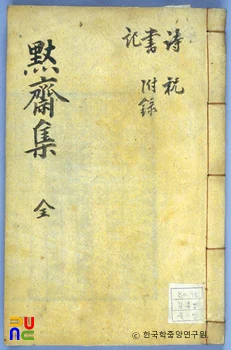 詩 祝
書 附錄
記
默齋集 全
ⓒ 한국학중앙연구원